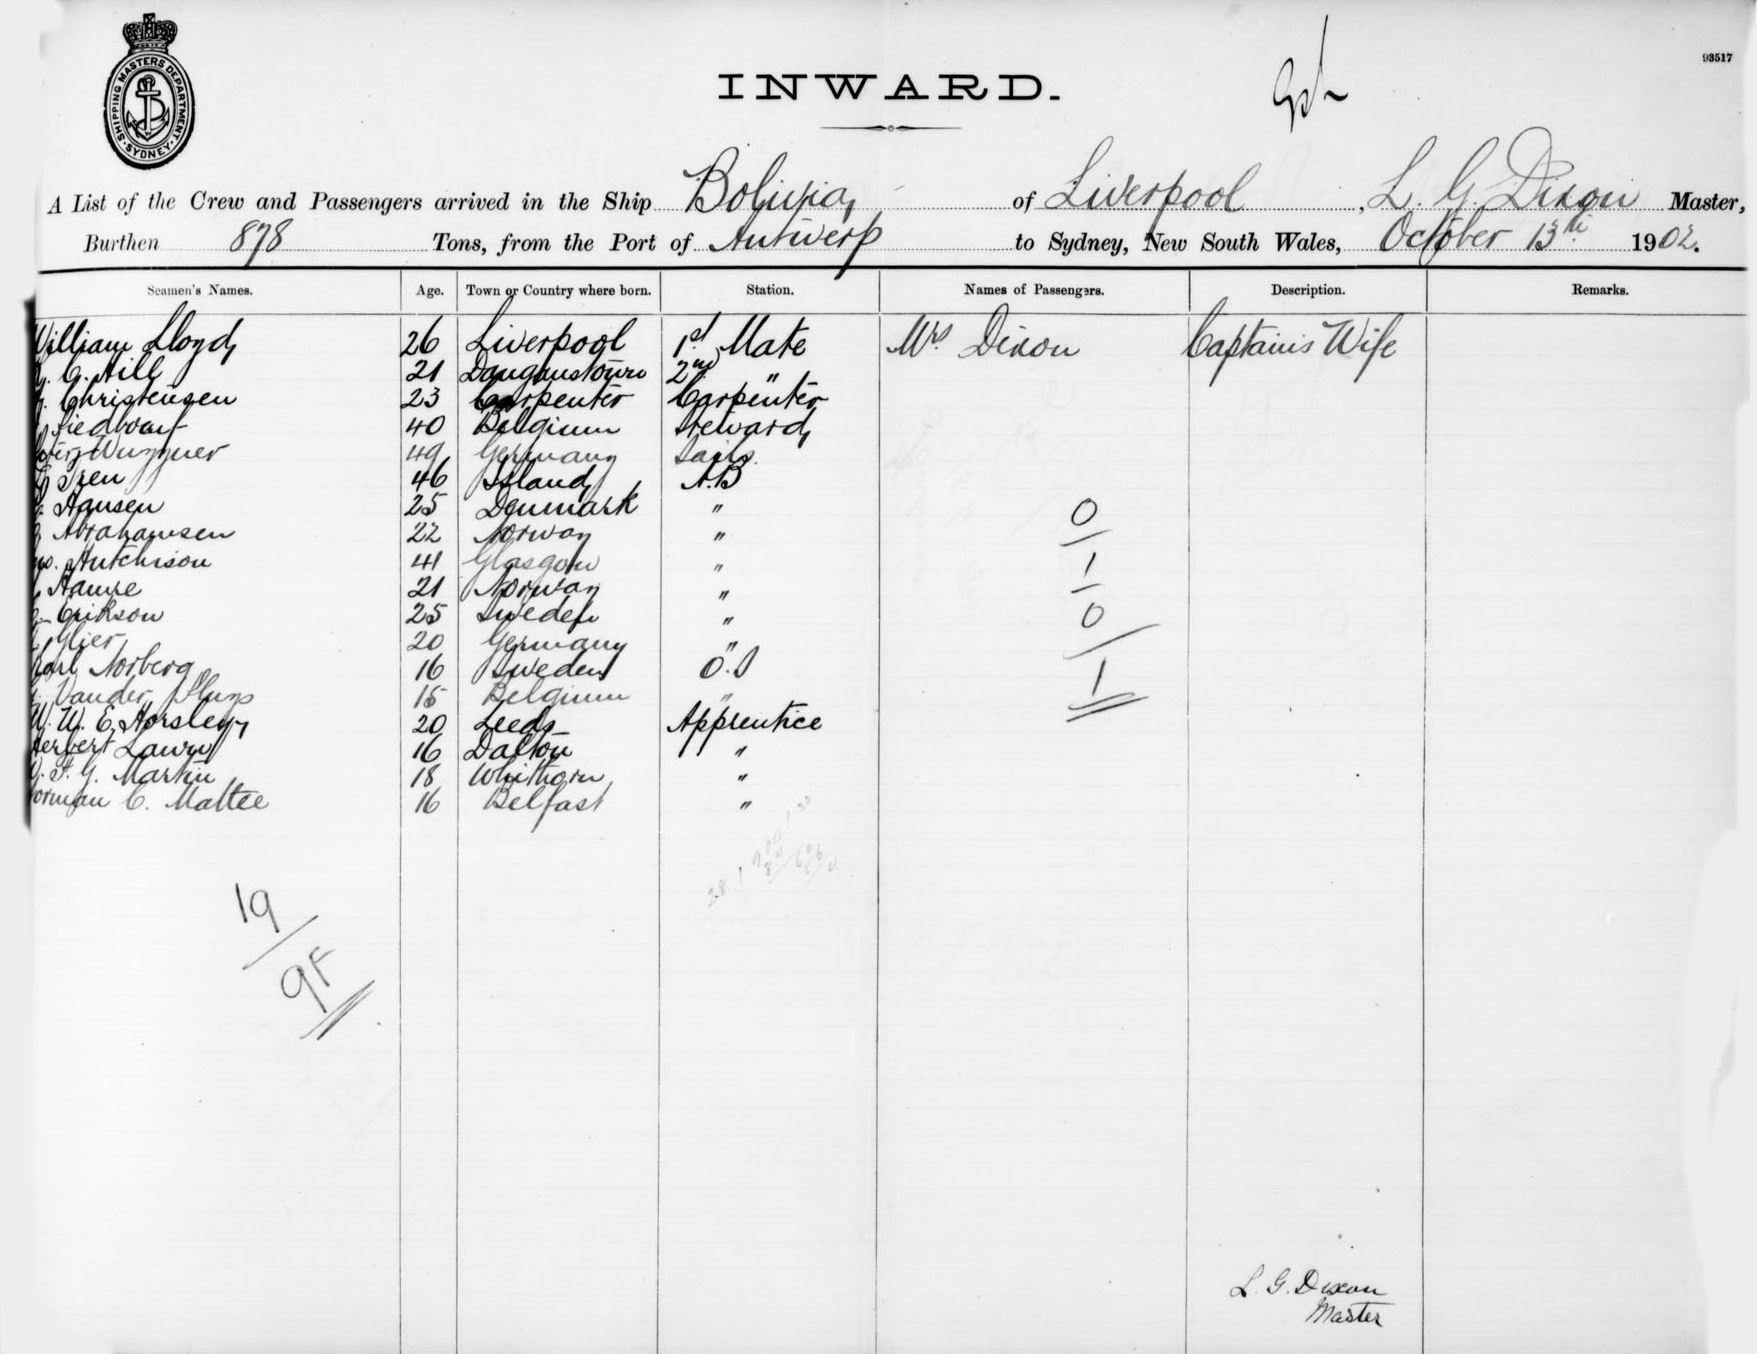 SHIPPING MASTERS DEPARTMENT. SYDNEY
93517
INWARD.
A List of the Crew and Passengers arrived in the Ship Bolivia, of Liverpool, L. G. Dixon Master,
Burthen 878 Tons, from the Port of Antwerp to Sydney, New South Wales, October 13th 1902.
Seamen's Names. Age. Town or Country where born. Station. Names of Passengers. Description. Remarks.
William Lloyd 26 Liverpool 1st Mate Mrs Dixon Captain's Wife
G. Hill 21 2nd "
Christensen 23 Carpenter Carpenter
40 Belgium Steward
49 Germany Sails.
46 Island A.B
Hansen 25 Denmark "
Abrahamsen 22 Norway "
Hutchison 41 Glasgow "
21 Norway "
Erikson 25 Sweden "
Glier 20 Germany "
Karl Norberg 16 Sweden O.S
Vander 15 Belgium "
W. W. E. Horsley 20 Leeds Apprentice
Herbert 16 Dalton "
F. G. Martin 18 Whithorn "
Norman C. Mattee 16 Belfast "
0
1
0
1
19
9F
L. G. Dixon
Master